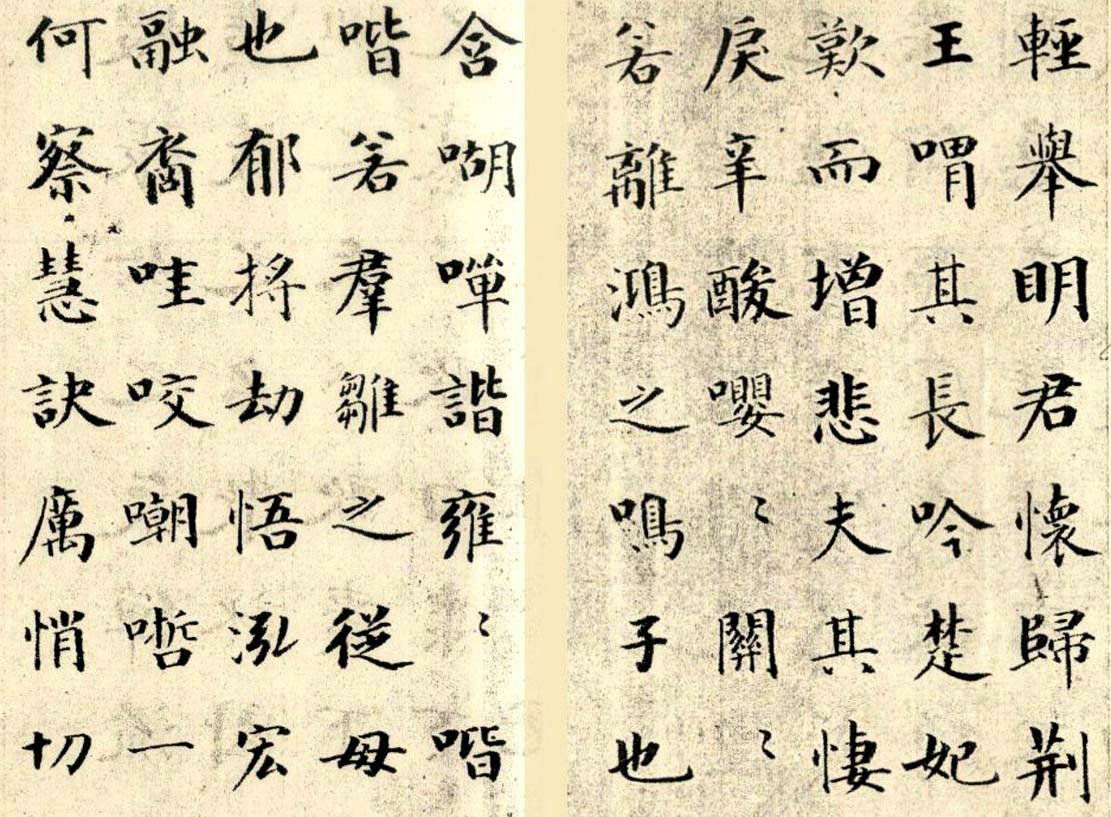 輕舉明君懷歸荆
王喟其長吟楚妃
歎而增悲夫其悽
戾辛酸嚶〻關〻
若離鴻之鳴子也
含喖嘽諧雍〻喈
喈若羣雛之從母
也郁捋劫悟泓宏
融裔哇咬嘲哳一
何察慧訣厲悄切